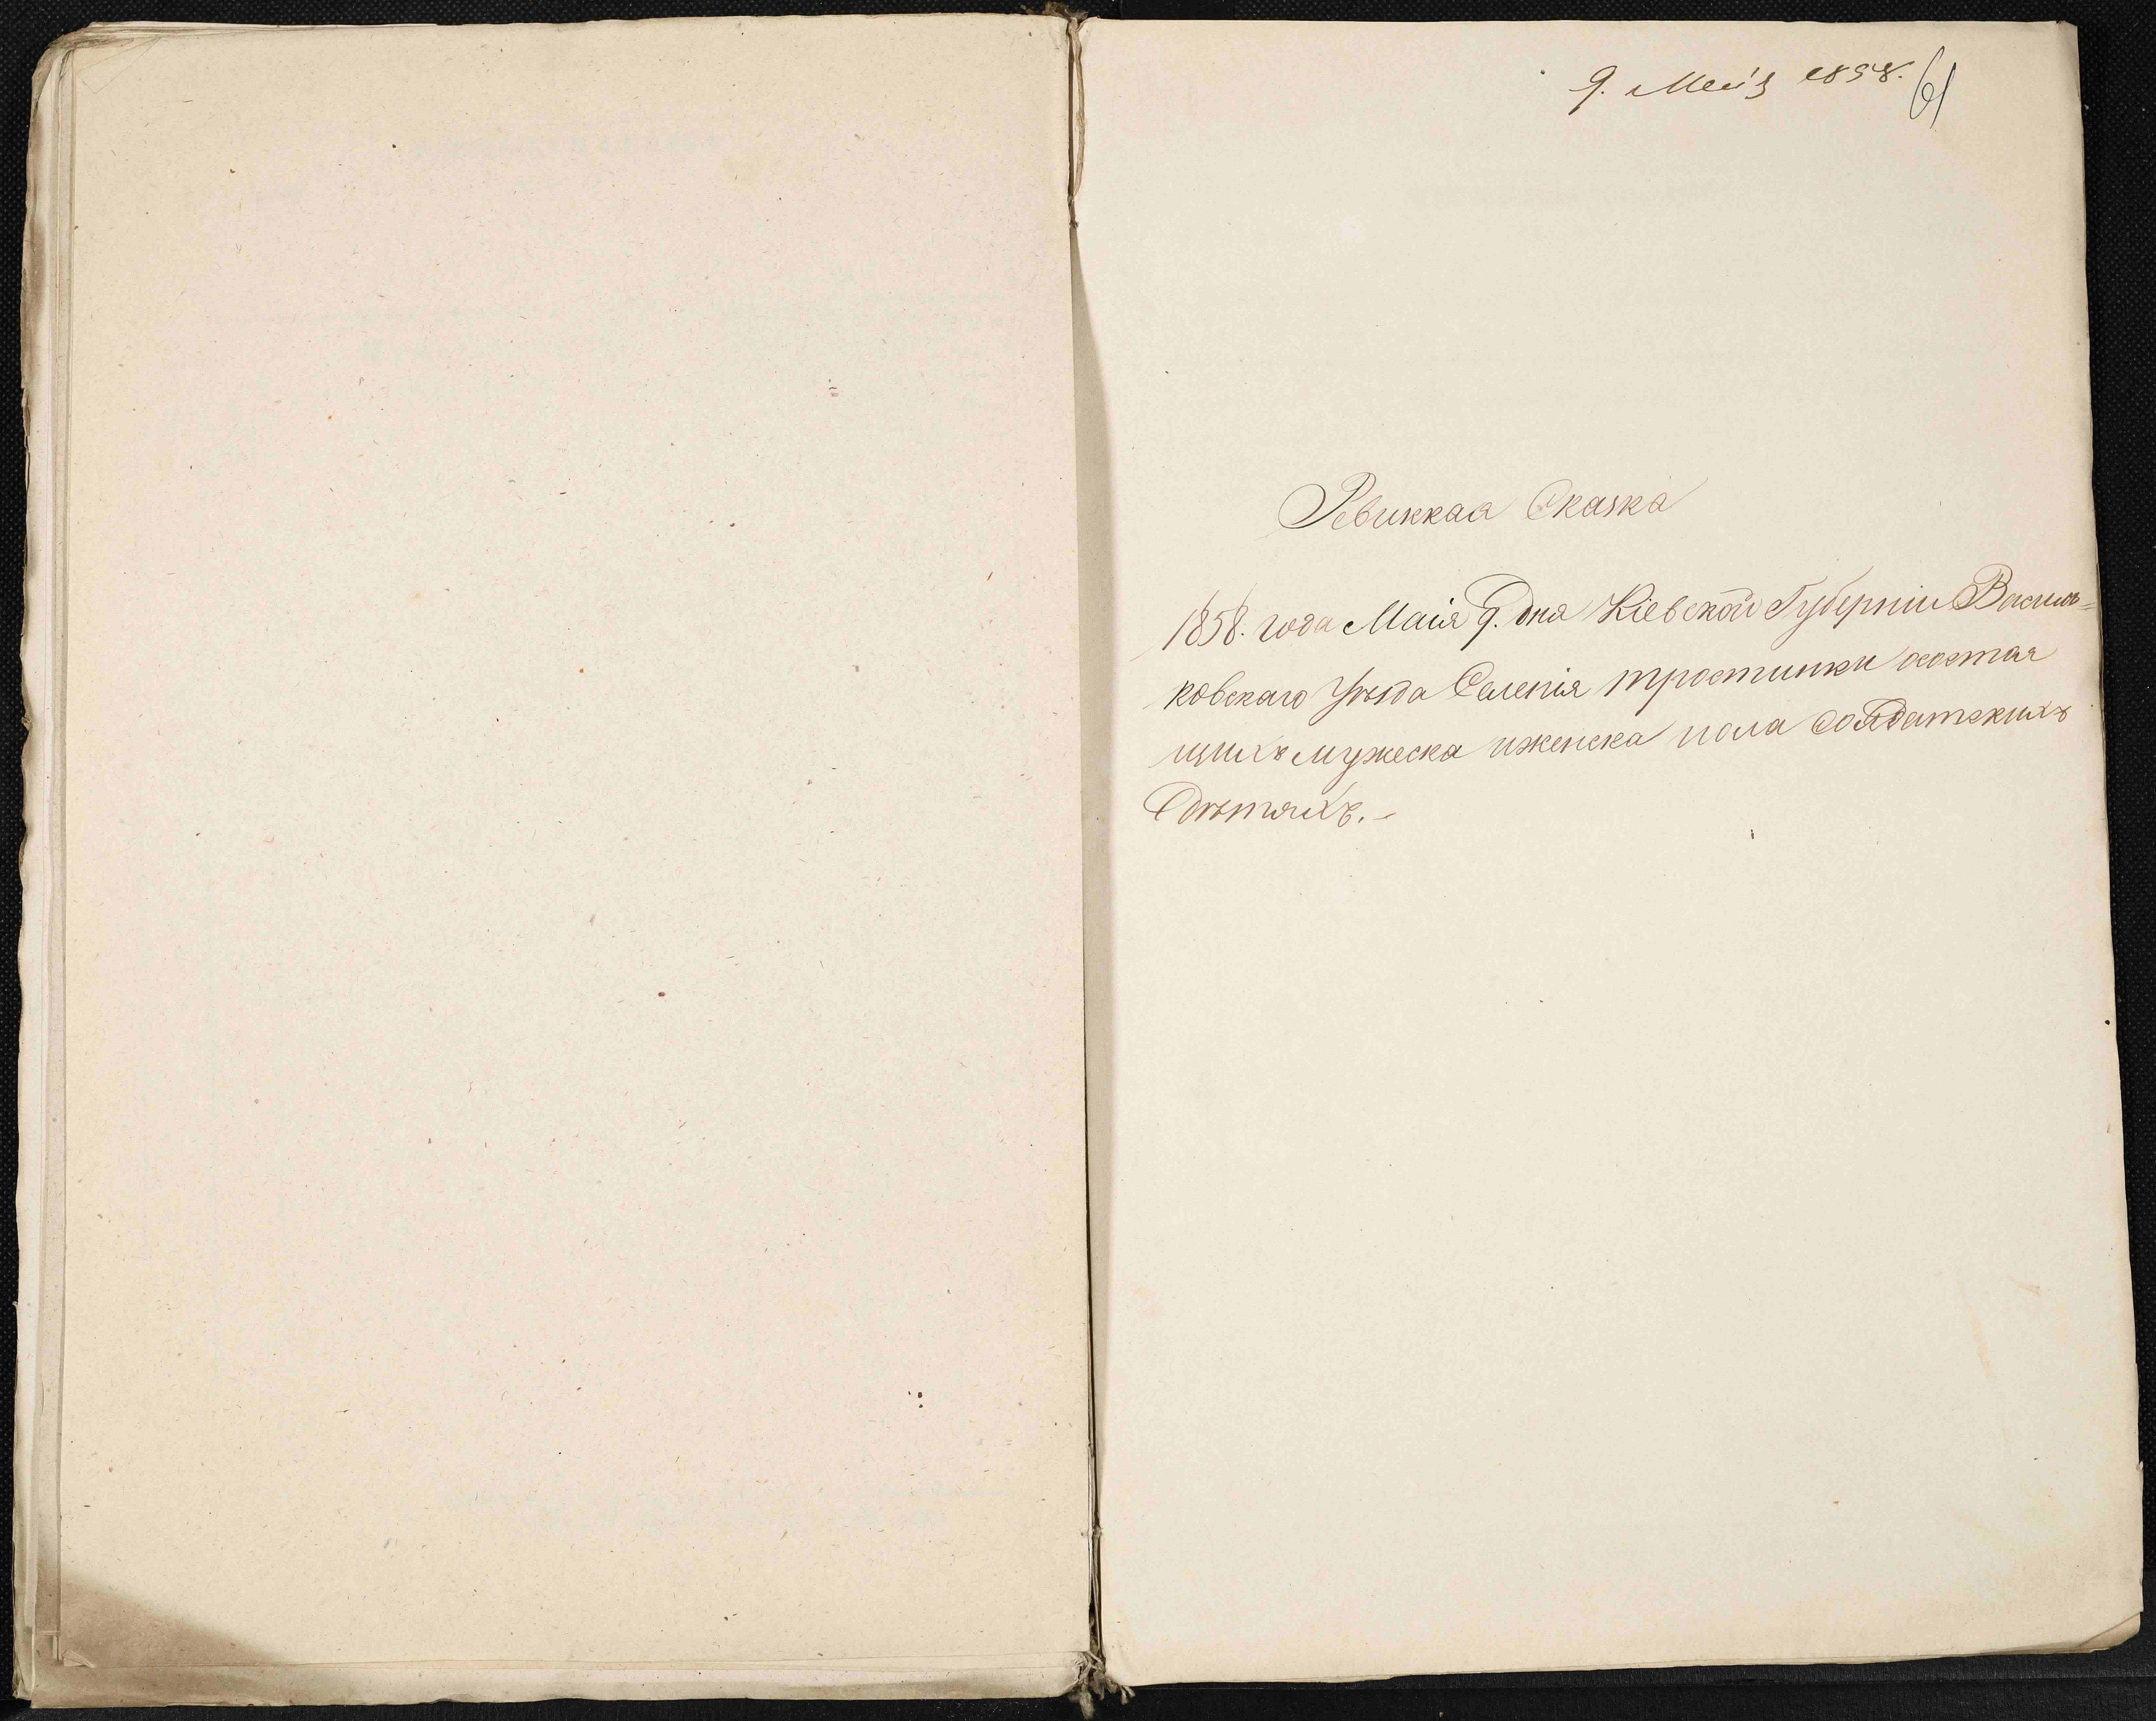 9. Мая 1858. 61
Ревизкая Сказка
1858. года Маія 9. дня Кіевской Губерніи Василь=
ковскаго Уѣзда Селенія тростинки осостоя
щихъ мужеска иженска пола Солдатскихъ
Дѣтяхъ.-